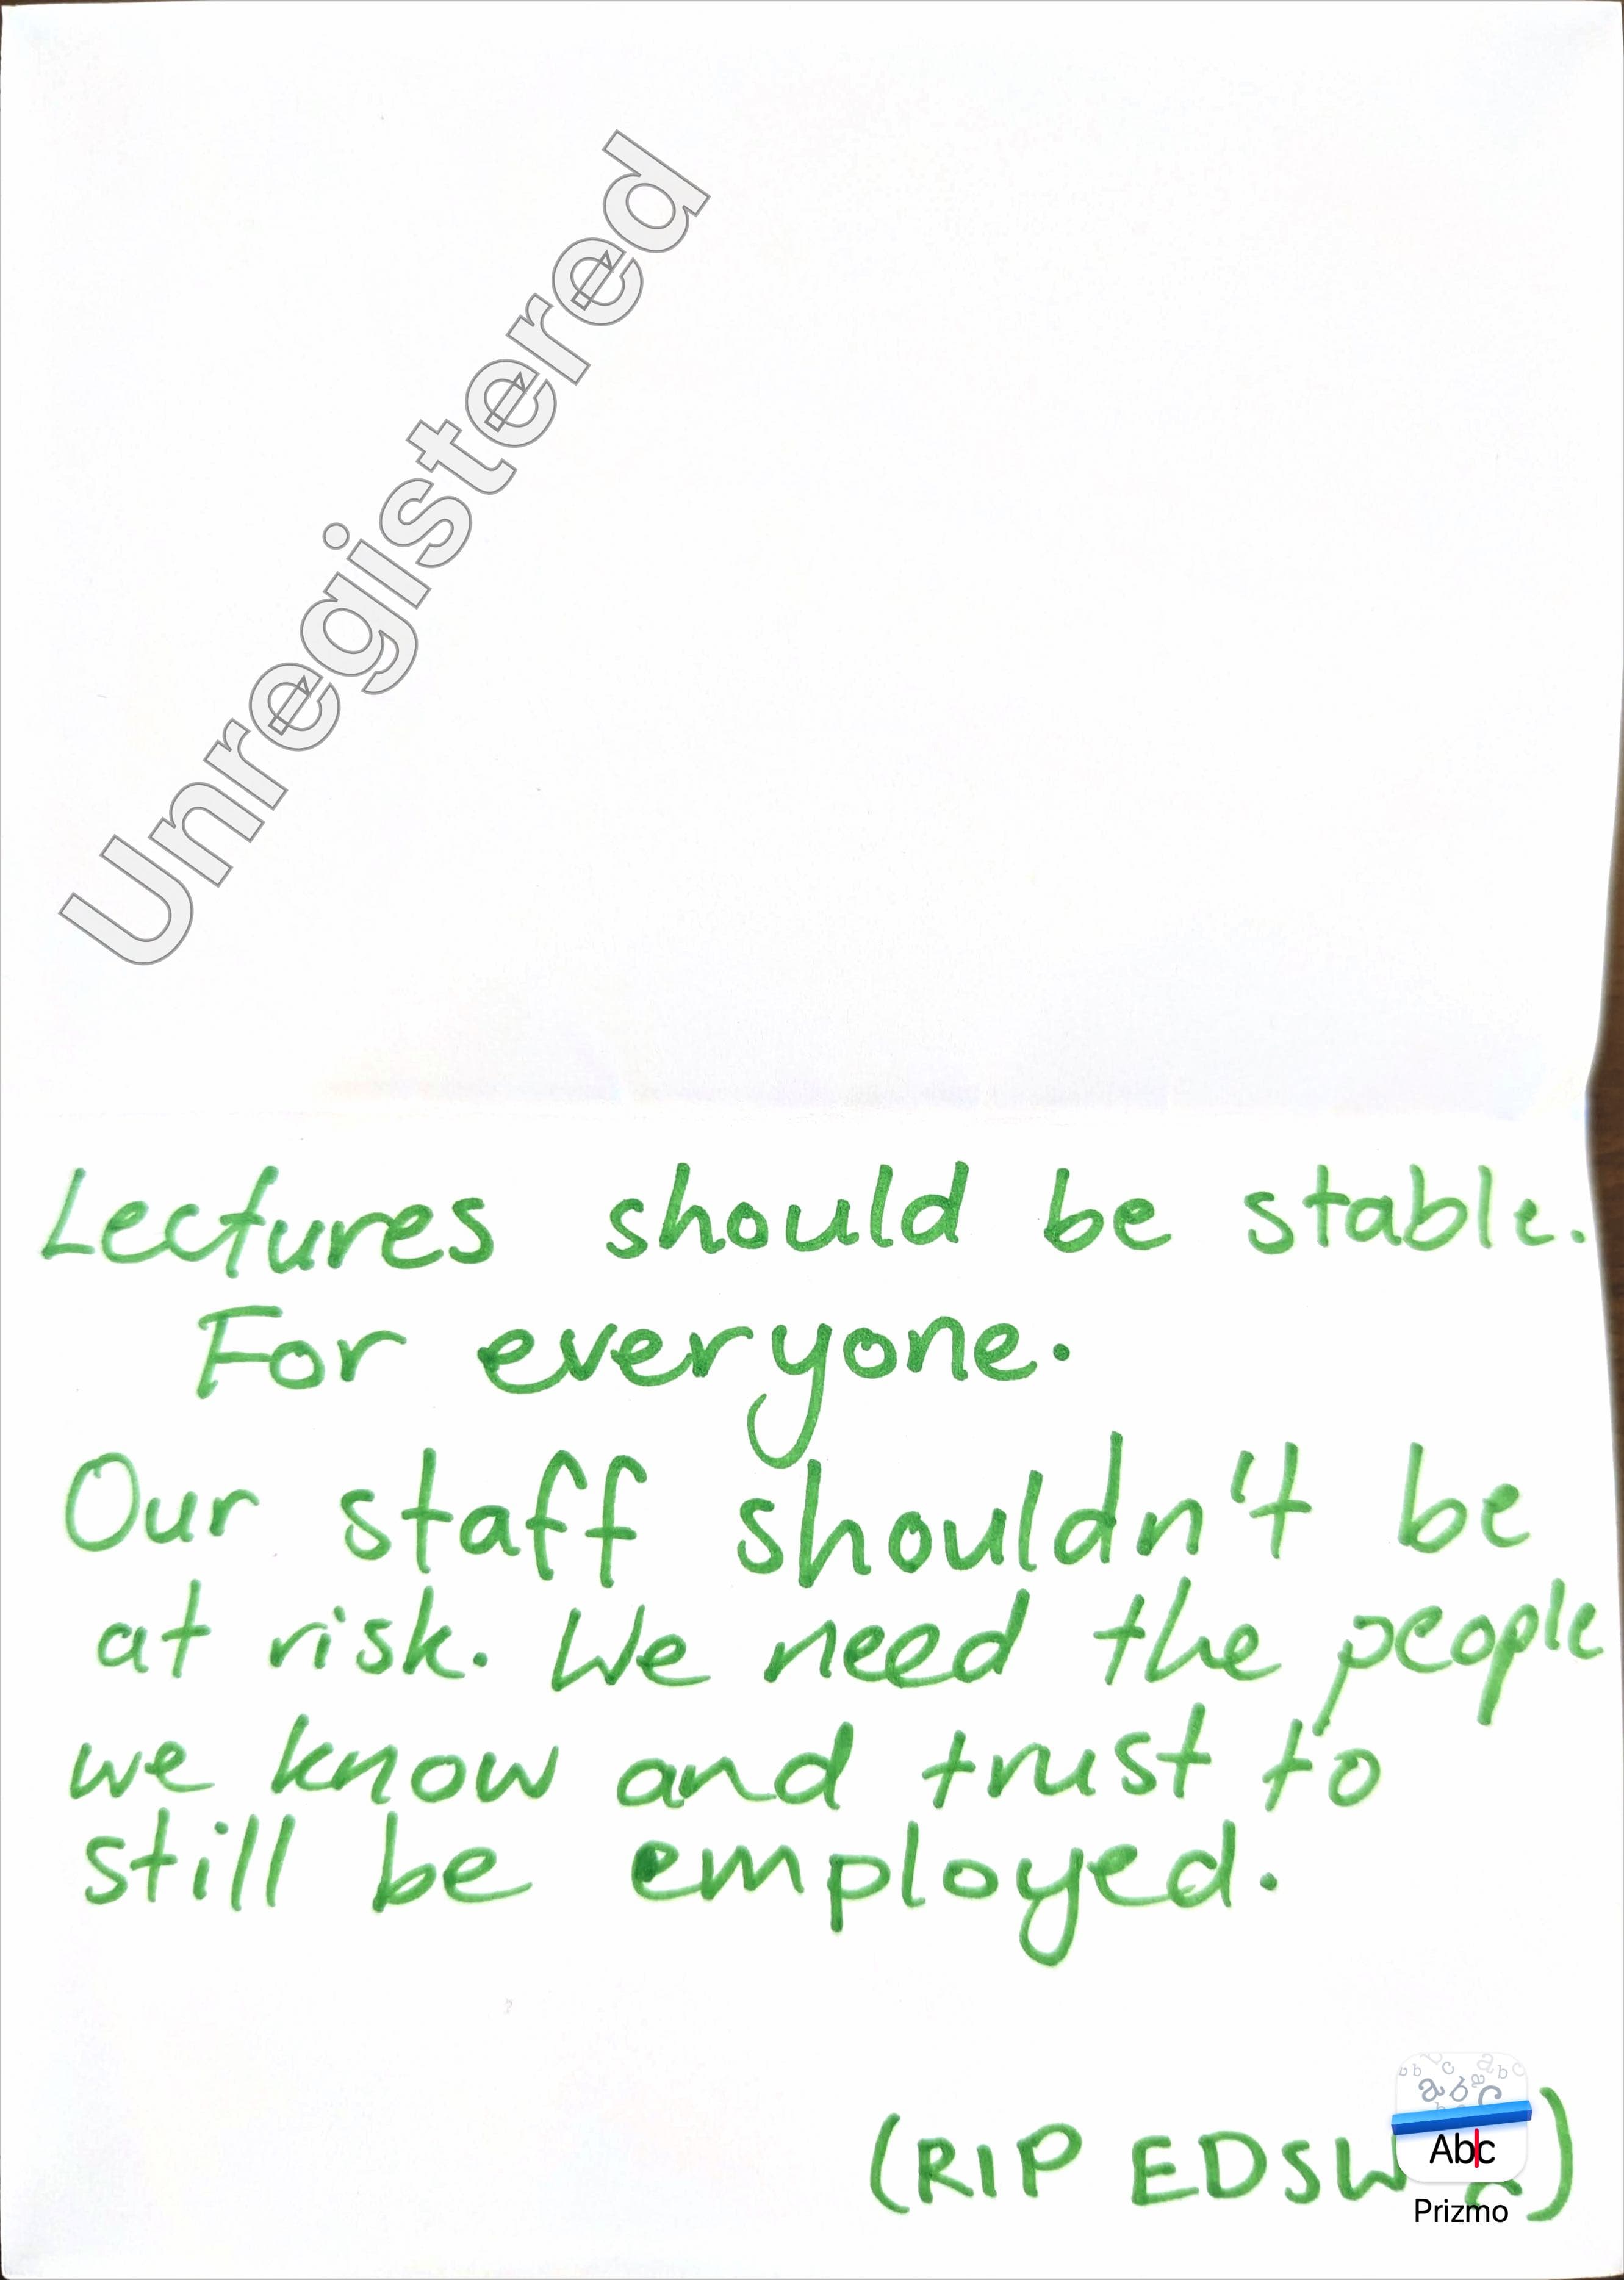 Unregistered
Lectures should be stable.
For everyone.
Our staff shouldn't be
at risk. We need the people
we know and trust to
still be employed.
(RIP
Abc
Prizmo